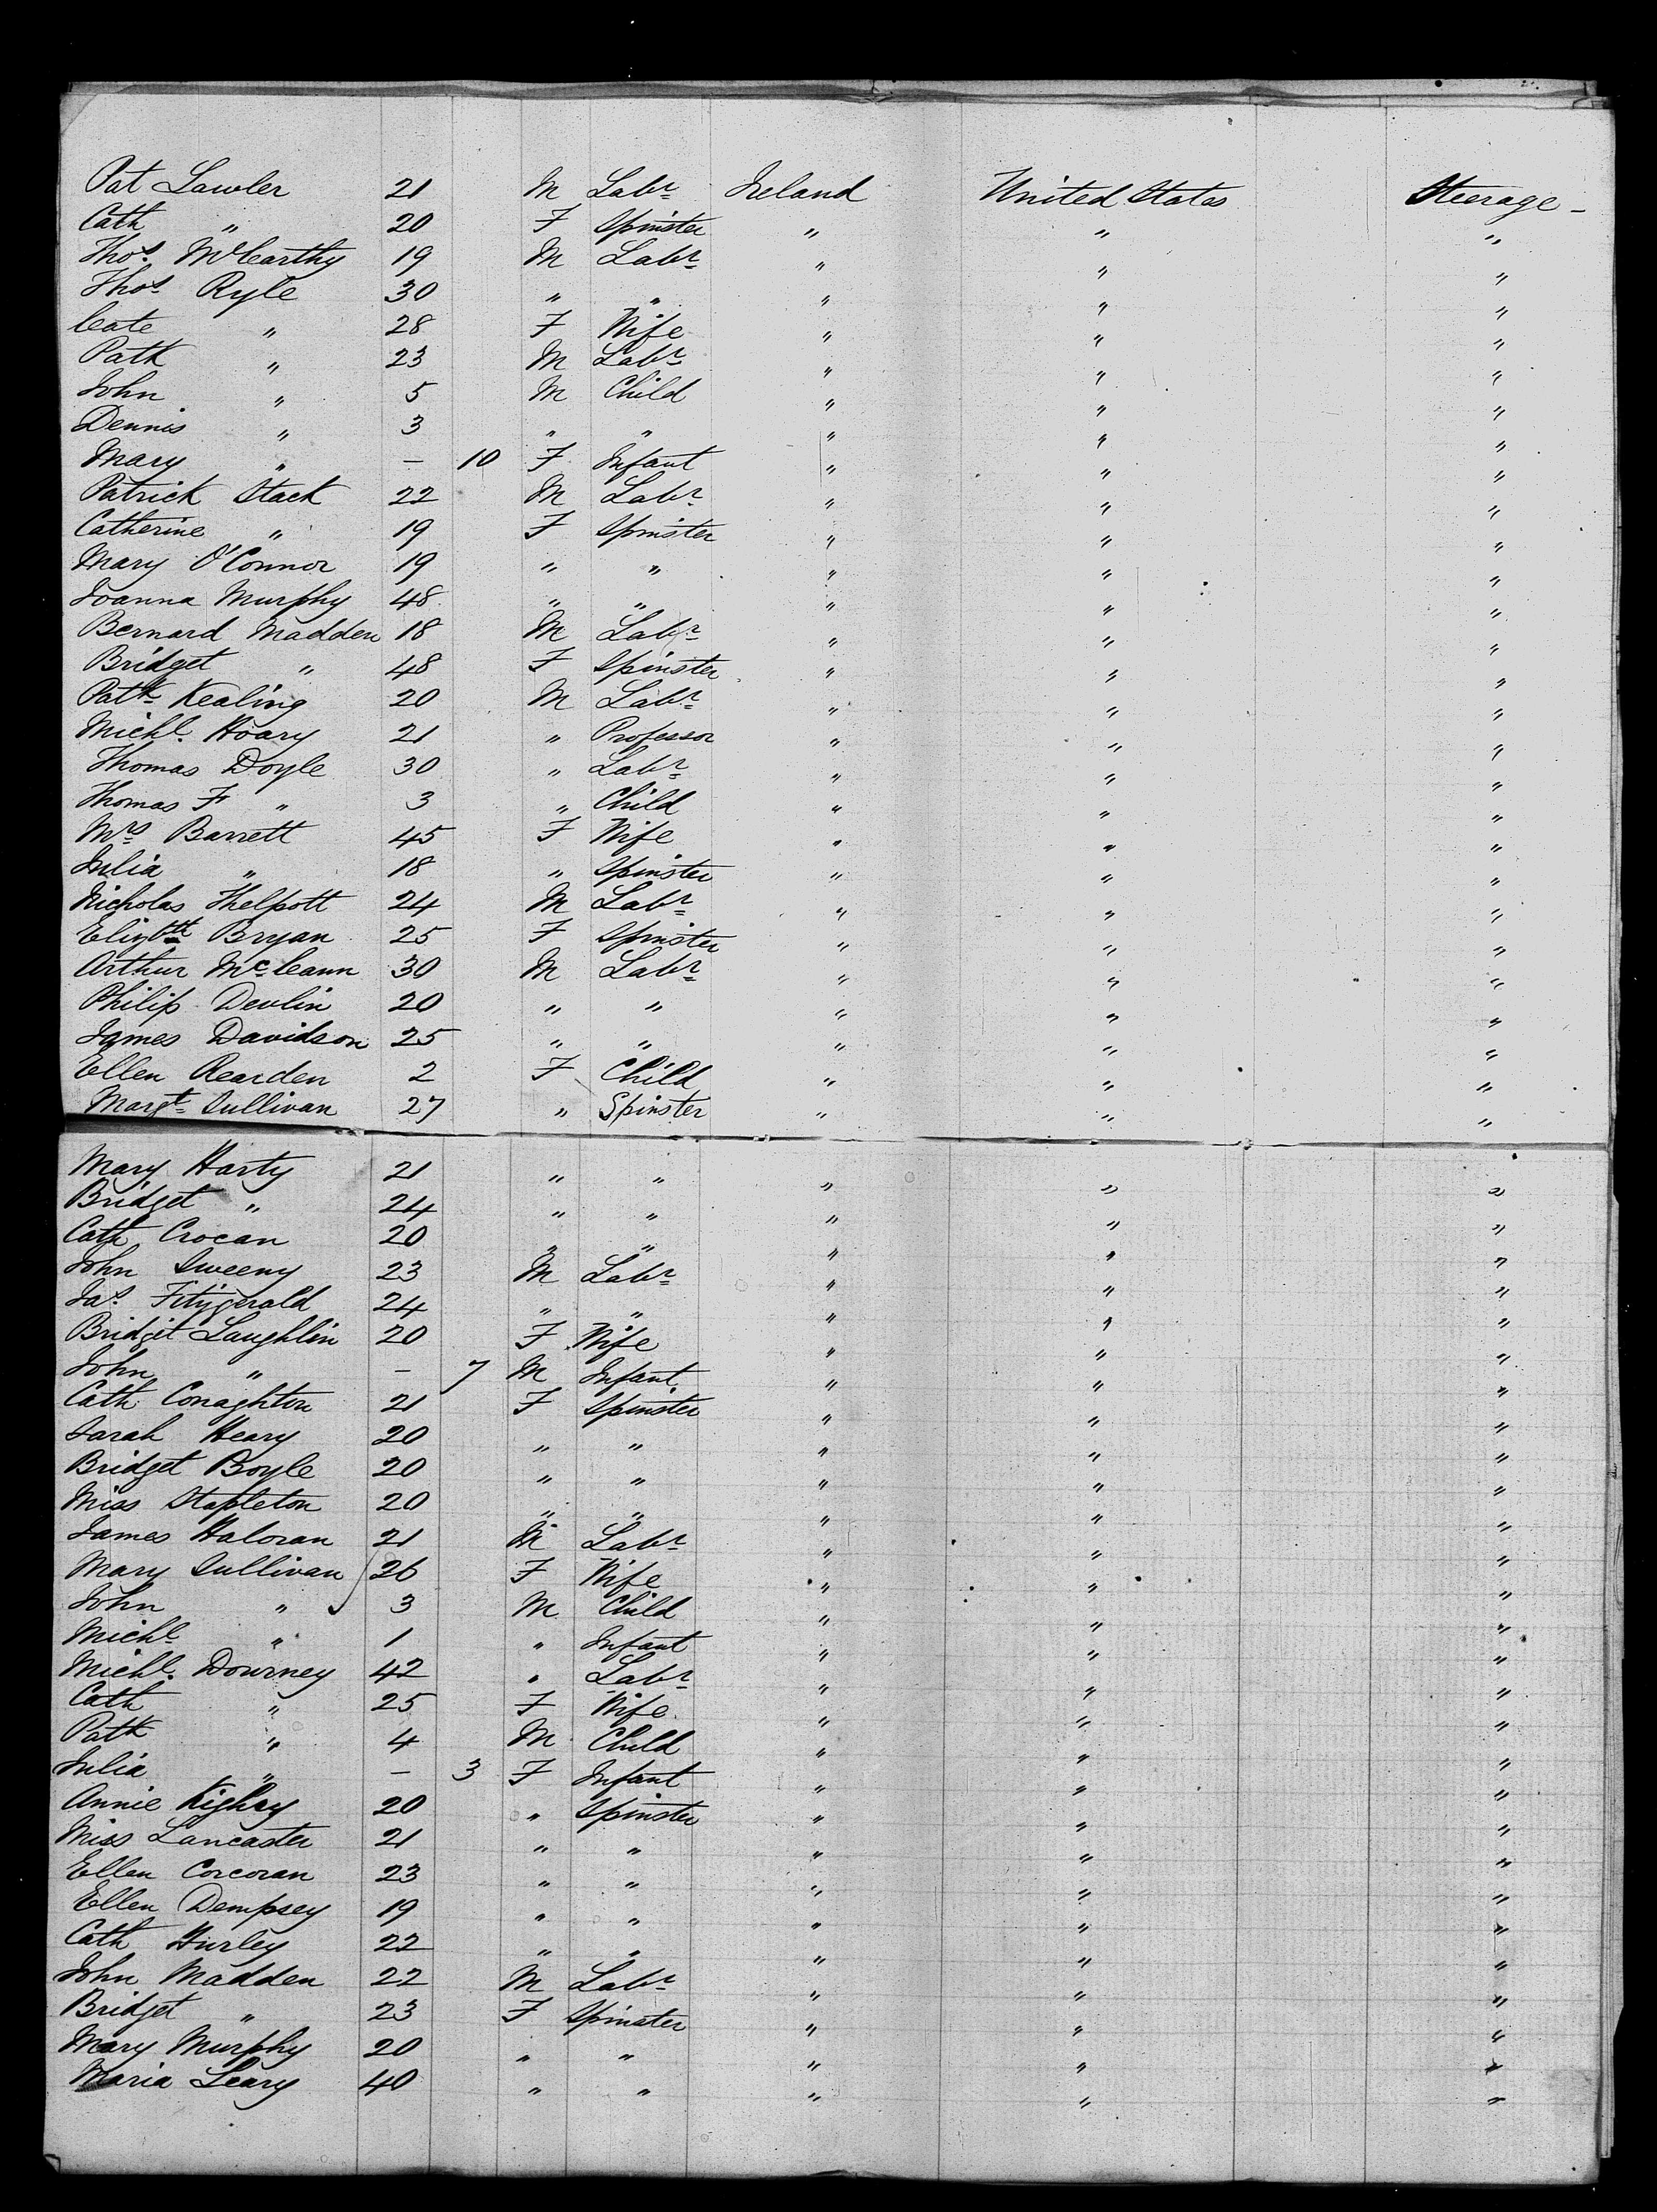 Pat Lawler 21 M Labr Ireland United States Steerage -
Cath " 20 F Spinster " " "
Thos. McCarthy 19 M Labr " " "
Thos Ryle 30 " " " " "
Cate " 28 F Wife " " "
Patk " 23 M Labr " " "
John " 5 M Child " " "
Dennis " 3 " " " " "
Mary " - 10 F Infant " " "
Patrick Stack 22 M Labr " " "
Catherine " 19 F Spinster " " "
Mary O'Connor 19 " " " " "
Joanna Murphy 48 " " " " "
Bernard Madden 18 M Labr " " "
Bridget " 48 F Spinster " " "
Patk Kealing 20 M Labr " " "
Michl. Hoary 21 " Professor " " "
Thomas Doyle 30 " Labr " " "
Thomas F " 3 " Child " " "
Mrs Barrett 45 F Wife " " "
Julia " 18 " Spinster " " "
Nicholas Thelpott 24 M Labr " " "
Elizbth Bryan 25 F Spinster " " "
Arthur McCann 30 M Labr " " "
Philip Devlin 20 " " " " "
James Davidson 25 " " " " "
Ellen Rearden 2 F Child " " "
Margt Sullivan 27 " Spinster " " "
Mary Harty 21 " " " " "
Bridget " 24 " " " " "
Cath Crocan 20 " " " " "
John Sweeny 23 M Labr " " "
Jas. Fitzgerald 24 " " " " "
Bridgit Laughlin 20 F Wife " " "
John " - 7 M Infant " " "
Cath Conaghton 21 F Spinster " " "
Sarah Heary 20 " " " " "
Bridget Boyle 20 " " " " "
Miss Stapleton 20 " " " " "
James Haloran 21 M Labr " " "
Mary Sullivan 26 F Wife " " "
John " 3 M Child " " "
Michl " 1 " Infant " " "
Michl. Downey 42 " Labr " " "
Cath " 25 F Wife " " "
Patk " 4 M Child " " "
Julia " - 3 F Infant " " "
Annie 20 " Spinster " " "
Miss Lancaster 21 " " " " "
Ellen Corcoran 23 " " " " "
Ellen Dempsey 19 " " " " "
Cath Hurley 22 " " " " "
John Madden 22 M Labr " " "
Bridget " 23 F Spinster " " "
Mary Murphy 20 " " " " "
Maria Leary 40 " " " " "